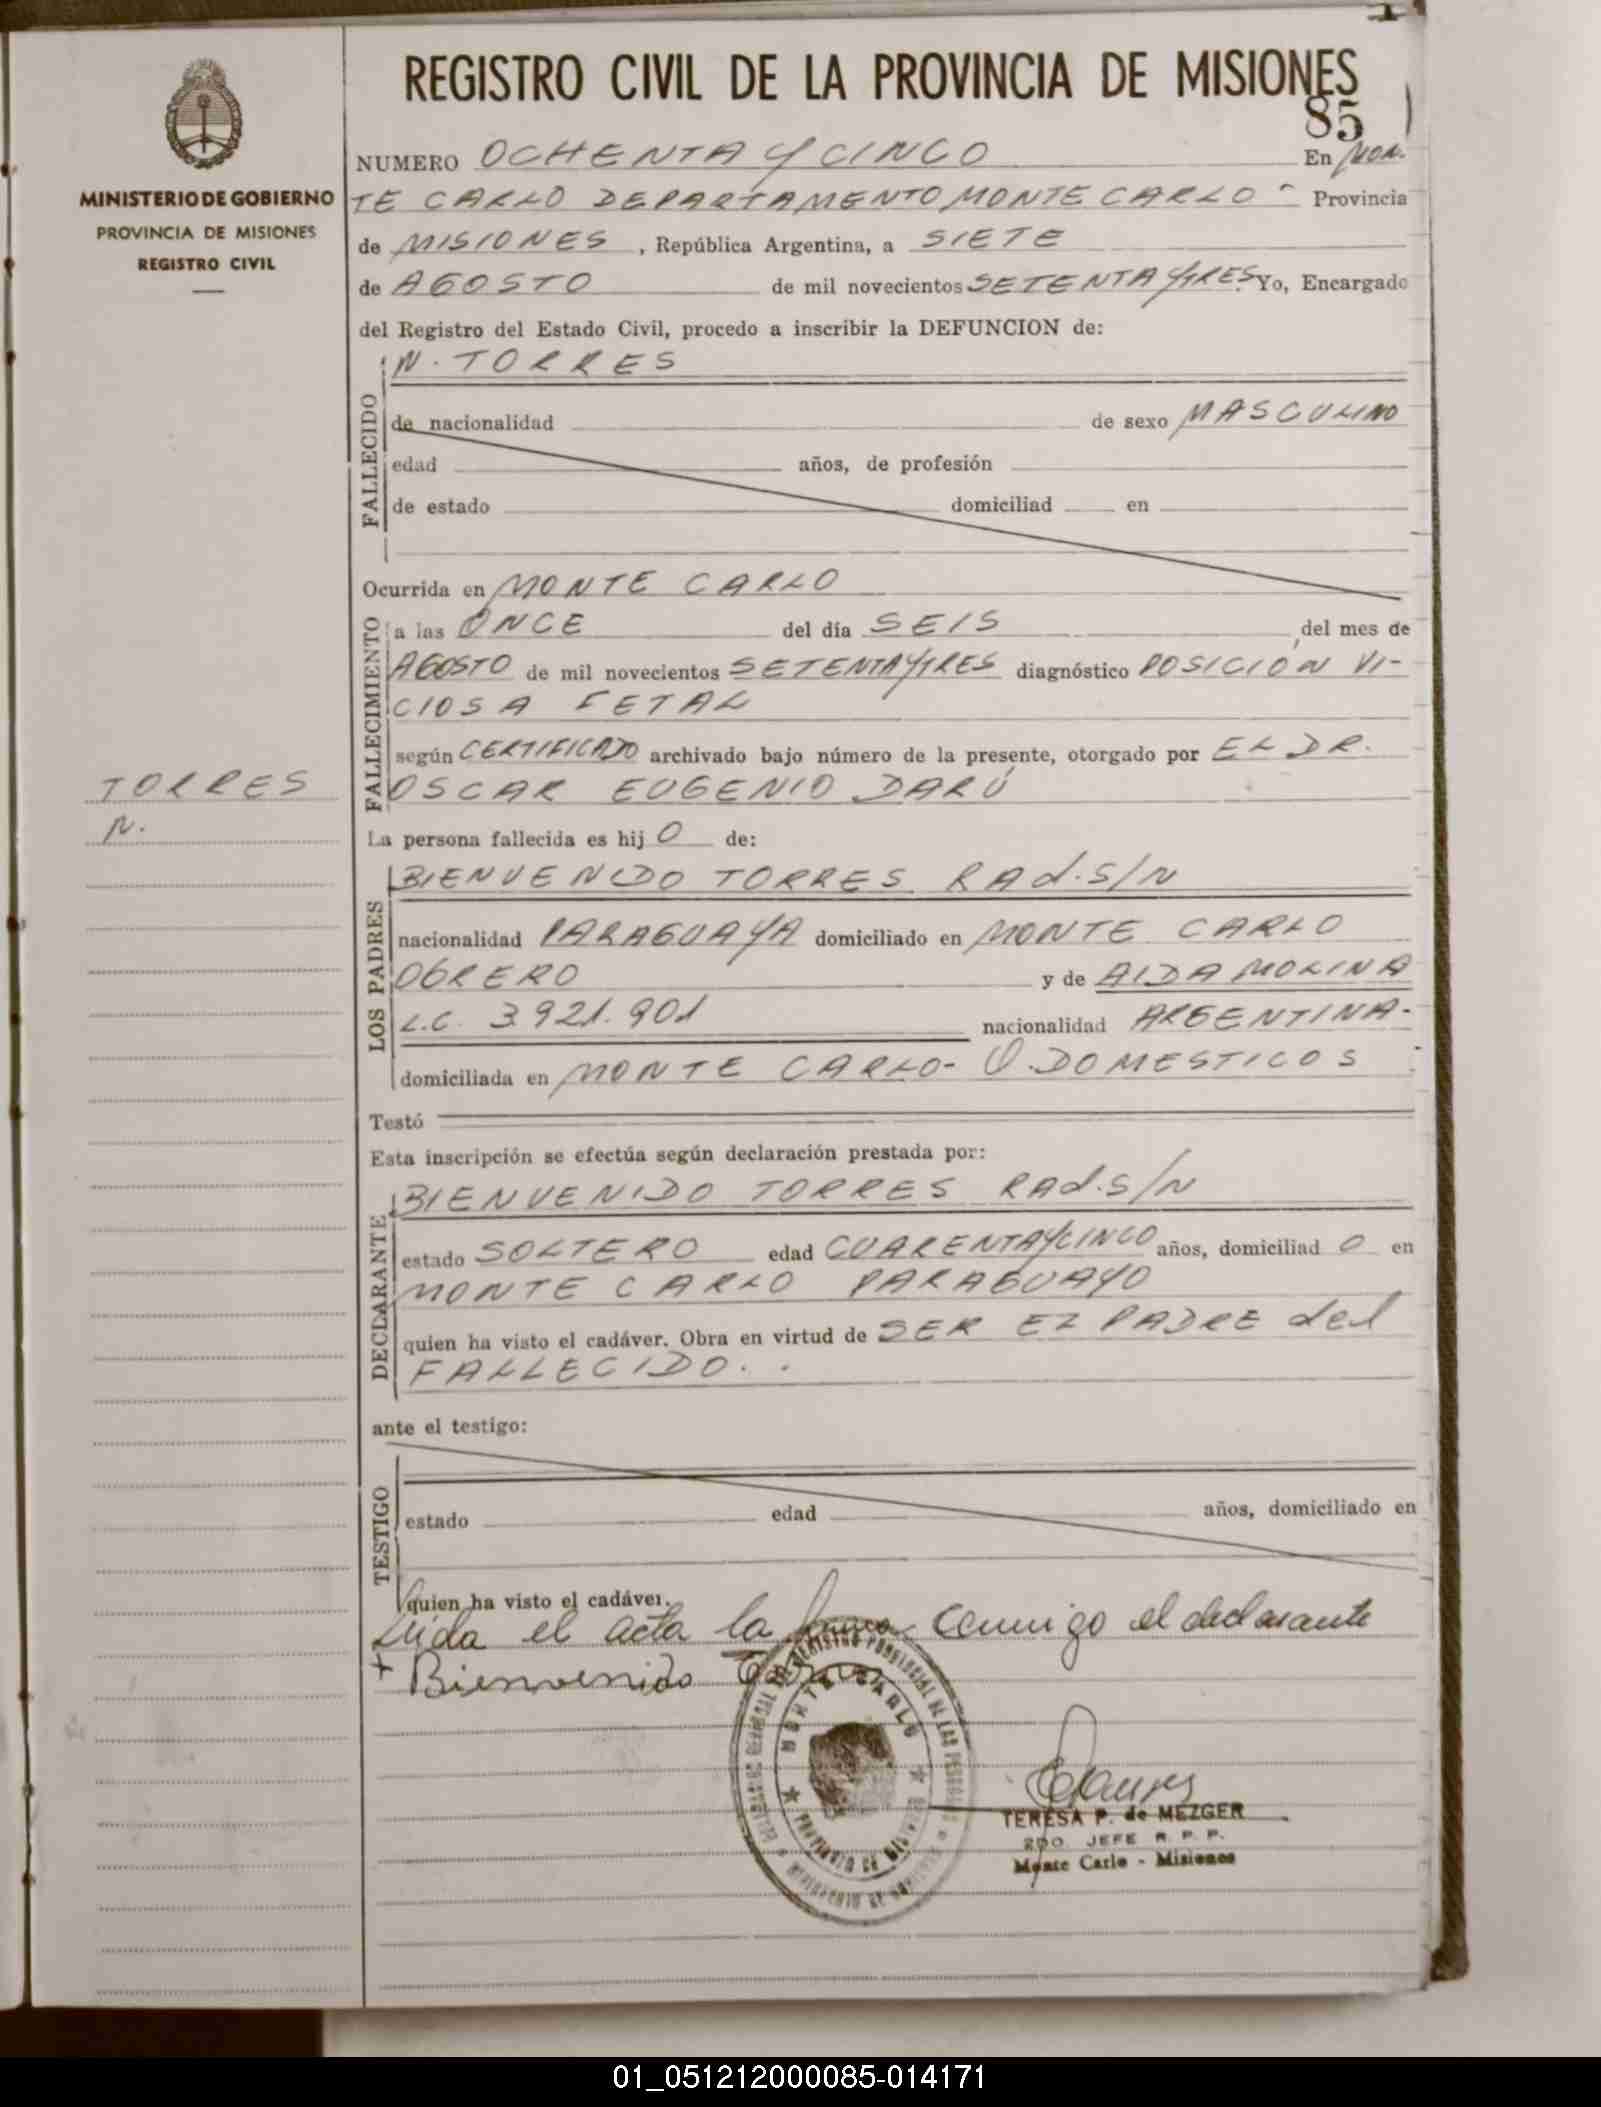 REGISTRO CIVIL DE LA PROVINCIA DE MISIONES
85
MINISTERIO DE GOBIERNO
PROVINCIA DE MISIONES
REGISTRO CIVIL
NUMERO OCHENTA Y CINCO En MON-
TE CARLO DEPARTAMENTO MONTE CARLO - Provincia
de MISIONES, República Argentina, a SIETE
de AGOSTO de mil novecientos SETENTA Y TRES. Yo, Encargado
del Registro del Estado Civil, procedo a inscribir la DEFUNCION de:
N. TORRES
FALLECIDO
de nacionalidad de sexo MASCULINO
edad años, de profesión
de estado domiciliad en
Ocurrida en MONTE CARLO
FALLECIMIENTO
a las ONCE del día SEIS del mes de
AGOSTO de mil novecientos SETENTA Y TRES diagnóstico POSICIÓN VI-
CIOSA FETAL
según CERTIFICADO archivado bajo número de la presente, otorgado por EL DR.
OSCAR EUGENIO DARÚ
TORRES
N.
La persona fallecida es hij O de:
BIENVENIDO TORRES RAd. S/N
LOS PADRES
nacionalidad PARAGUAYA domiciliado en MONTE CARLO
OBRERO y de AIDA MOLINA
L.C. 3.921.901 nacionalidad ARGENTINA.
domiciliada en MONTE CARLO - Q. DOMESTICOS
Testó
Esta inscripción se efectúa según declaración prestada por:
BIENVENIDO TORRES RAd. S/N
DECLARANTE
estado SOLTERO edad CUARENTA Y CINCO años, domiciliad O en
MONTE CARLO PARAGUAYO
quien ha visto el cadáver. Obra en virtud de SER EL PADRE del
FALLECIDO. .
ante el testigo:
TESTIGO
estado edad años, domiciliado en
quien ha visto el cadáver.
Leida el acta la firma conmigo el declarante
+ Bienvenido Torres
MONTE CARLO
PROVINCIA DE MISIONES
TERESA P. de MEZGER
2DO. JEFE R. P. P.
Monte Carlo - Misiones
01_051212000085-014171